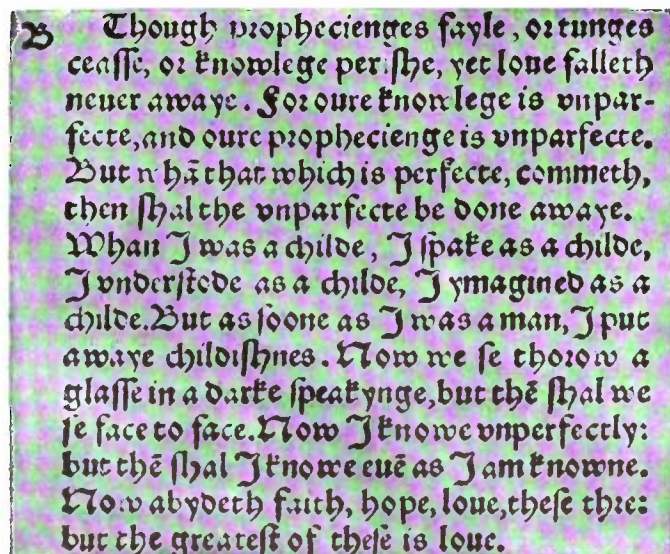 B Though prophecienges fayle, or tunges
ceaſſe, or knowlege periſhe, yet loue falleth
neuer awaye. For oure knowlege is vnpar-
fecte, and oure prophecienge is vnparfecte.
But whā that which is perfecte, commeth,
then ſhal the vnparfecte be done awaye.
Whan J was a childe, J ſpake as a childe,
J vnderſtode as a childe, J ymagined as a
childe. But as ſoone as J was a man, J put
awaye childiſhnes. Now we ſe thorow a
glaſſe in a darke ſpeakynge, but thē ſhal we
ſe face to face. Now J knowe vnperfectly:
but thē ſhal J knowe euē as J am knowne.
Now abydeth faith, hope, loue, theſe thre:
but the greateſt of theſe is loue.